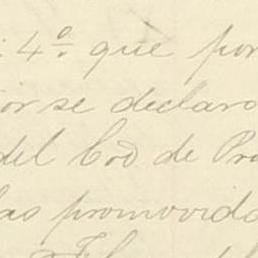 4º. que por
or se declaro
del Cod de Pro
las promovido